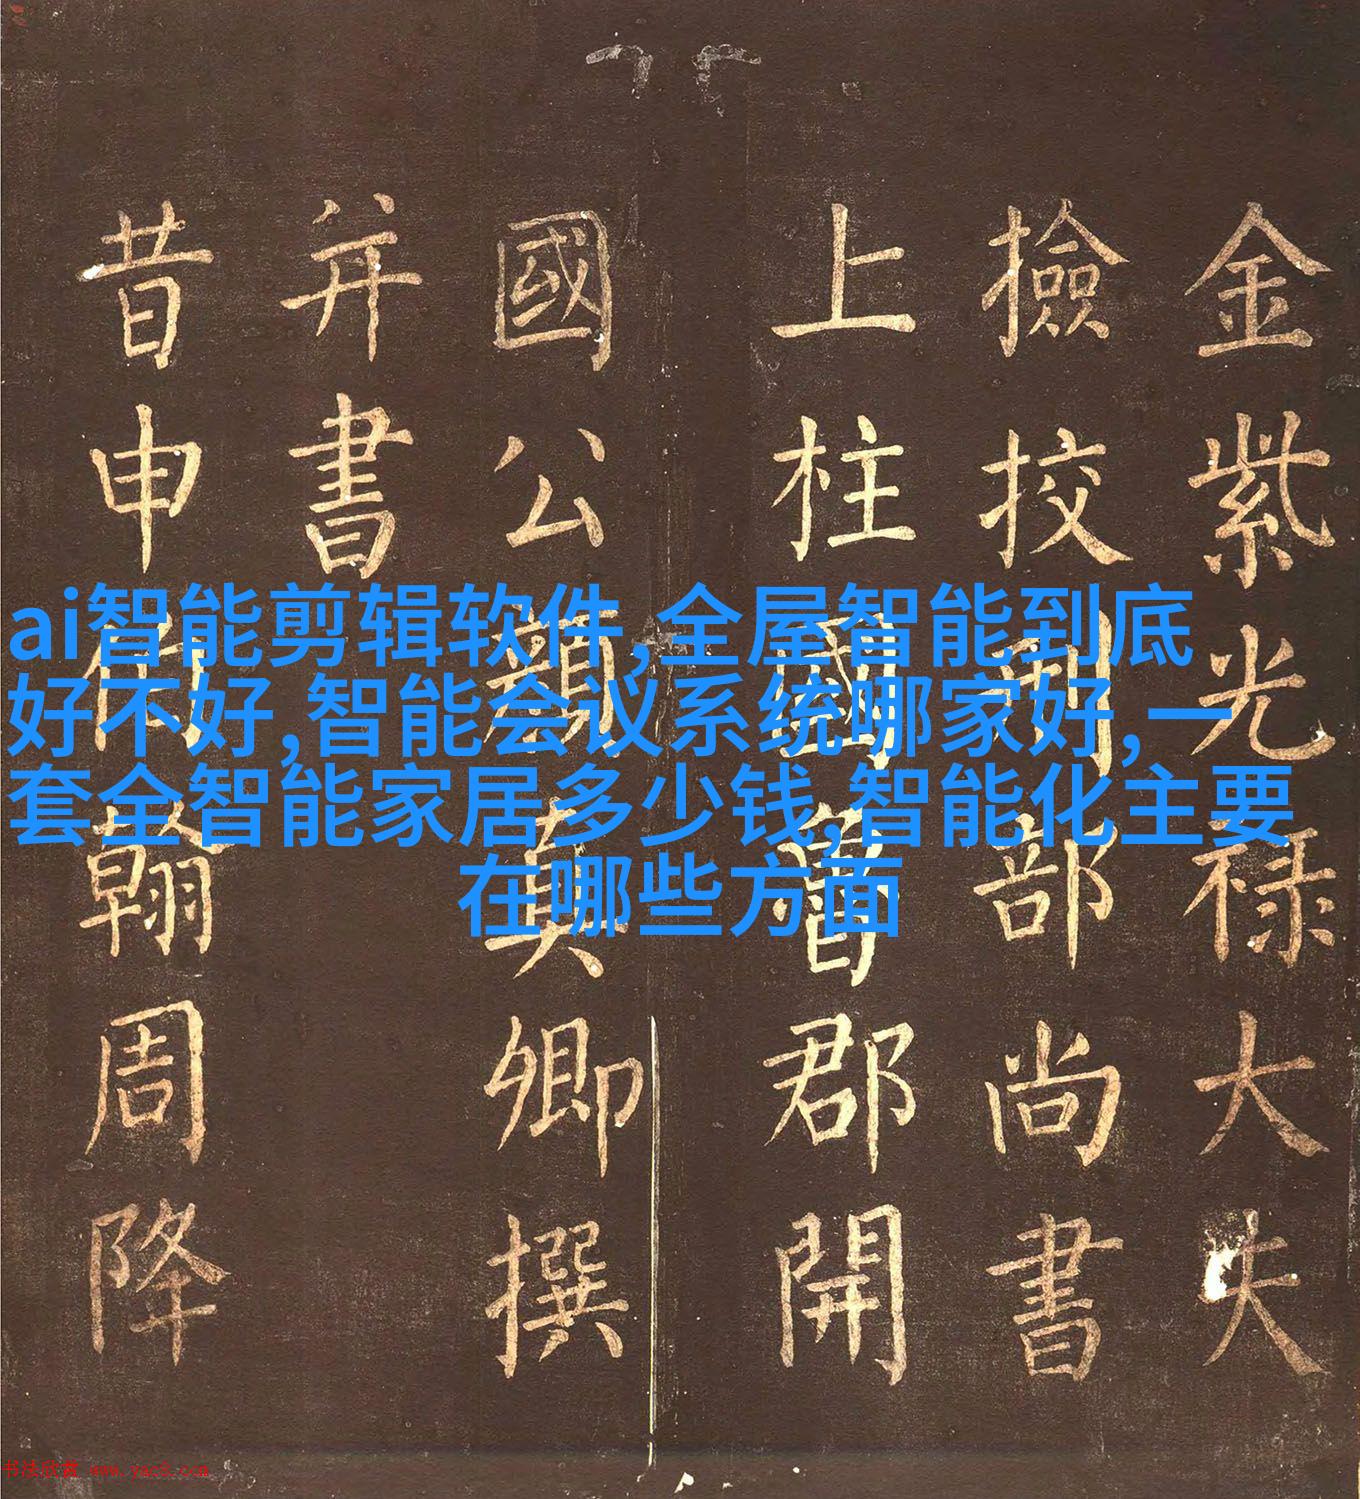 金紫光禄大夫
撿挍刑部尚書
上柱國魯郡開
國公顏真卿撰
并書
昔申甫翰周降
ai智能剪辑软件,全屋智能到底
好不好,智能会议系统哪家好,一
套全智能家居多少钱,智能化主要
在哪些方面
书法欣赏 www.yac8.com